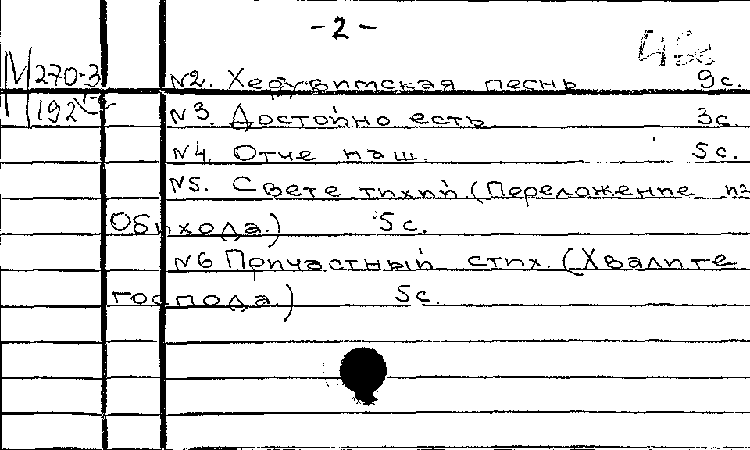 -2-
М 270-3 №2. Херувимская песнь 9с.
192 №3. Достойно есть 3с.
№4. Отче наш. 5с.
№5. Свете тихий (Переложение из
Обихода.) 5с.
№6 Причастный стих. (Хвалите
господа.) 5с.